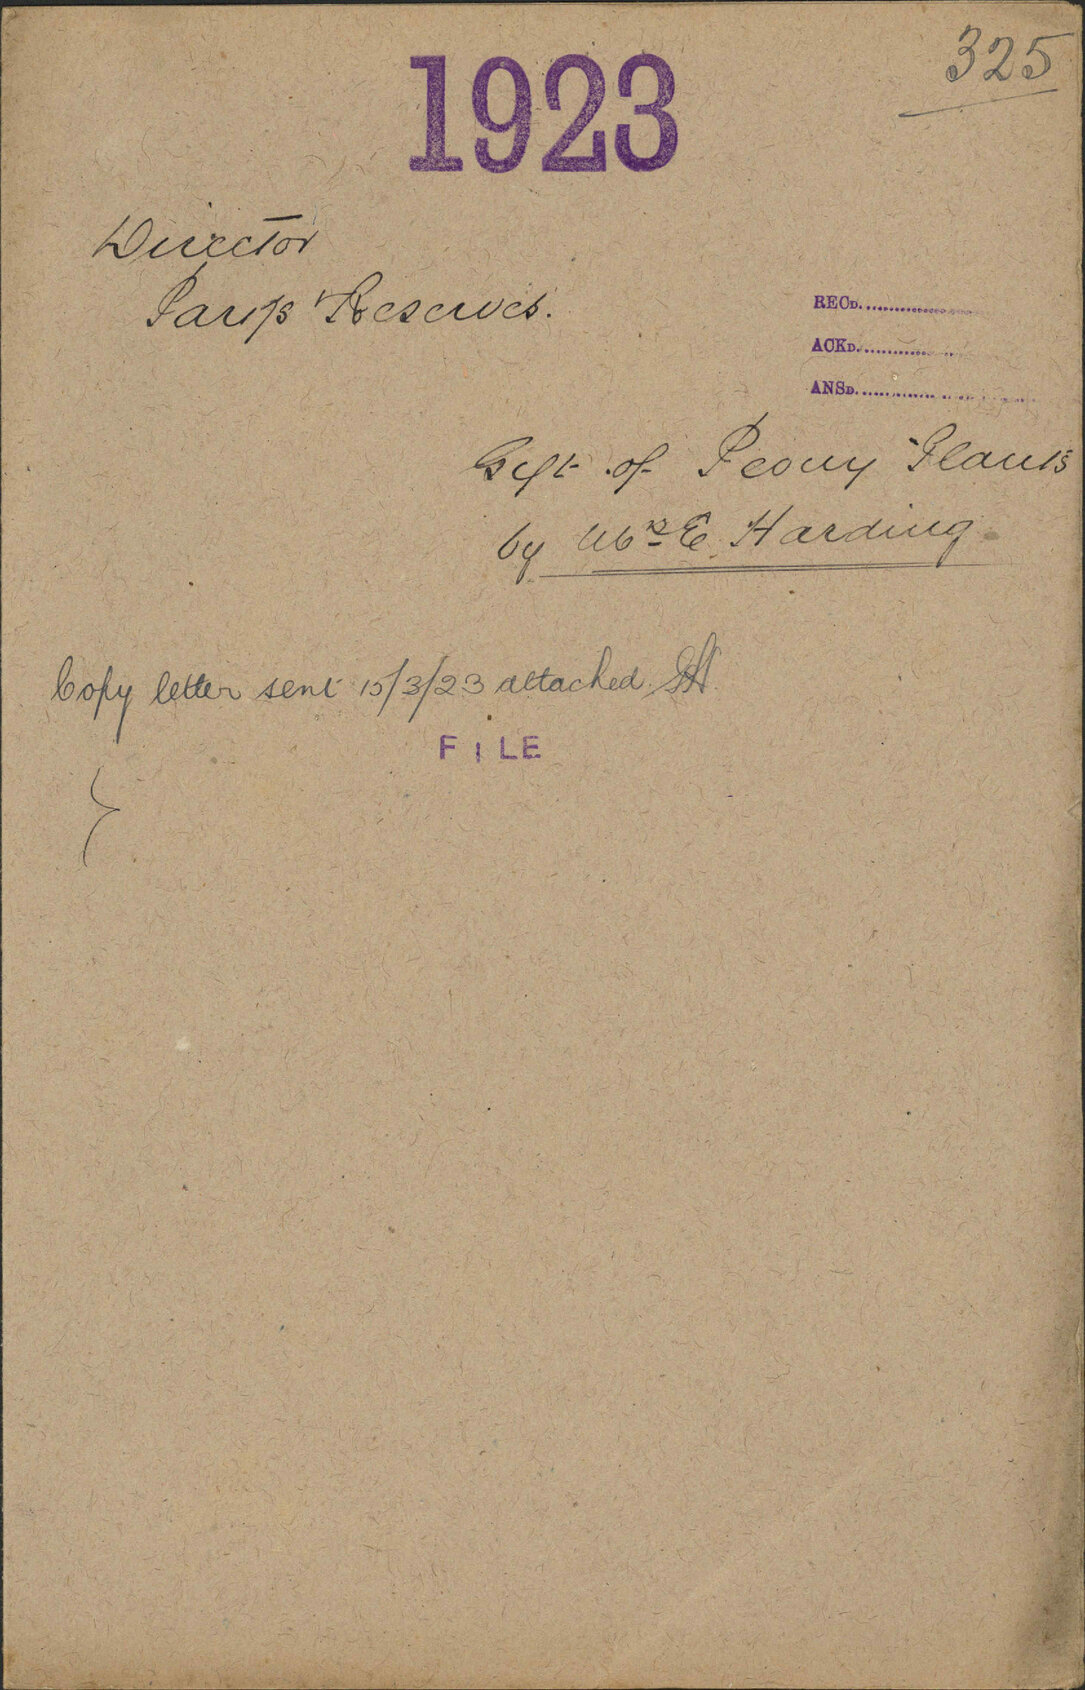 325
1923
Director
Parks Reserves.
RECD.
ACKD.
ANSD.
Gift of Peony Plants
by Mrs E. Harding
Copy letter sent 15/3/23 attached
FILE